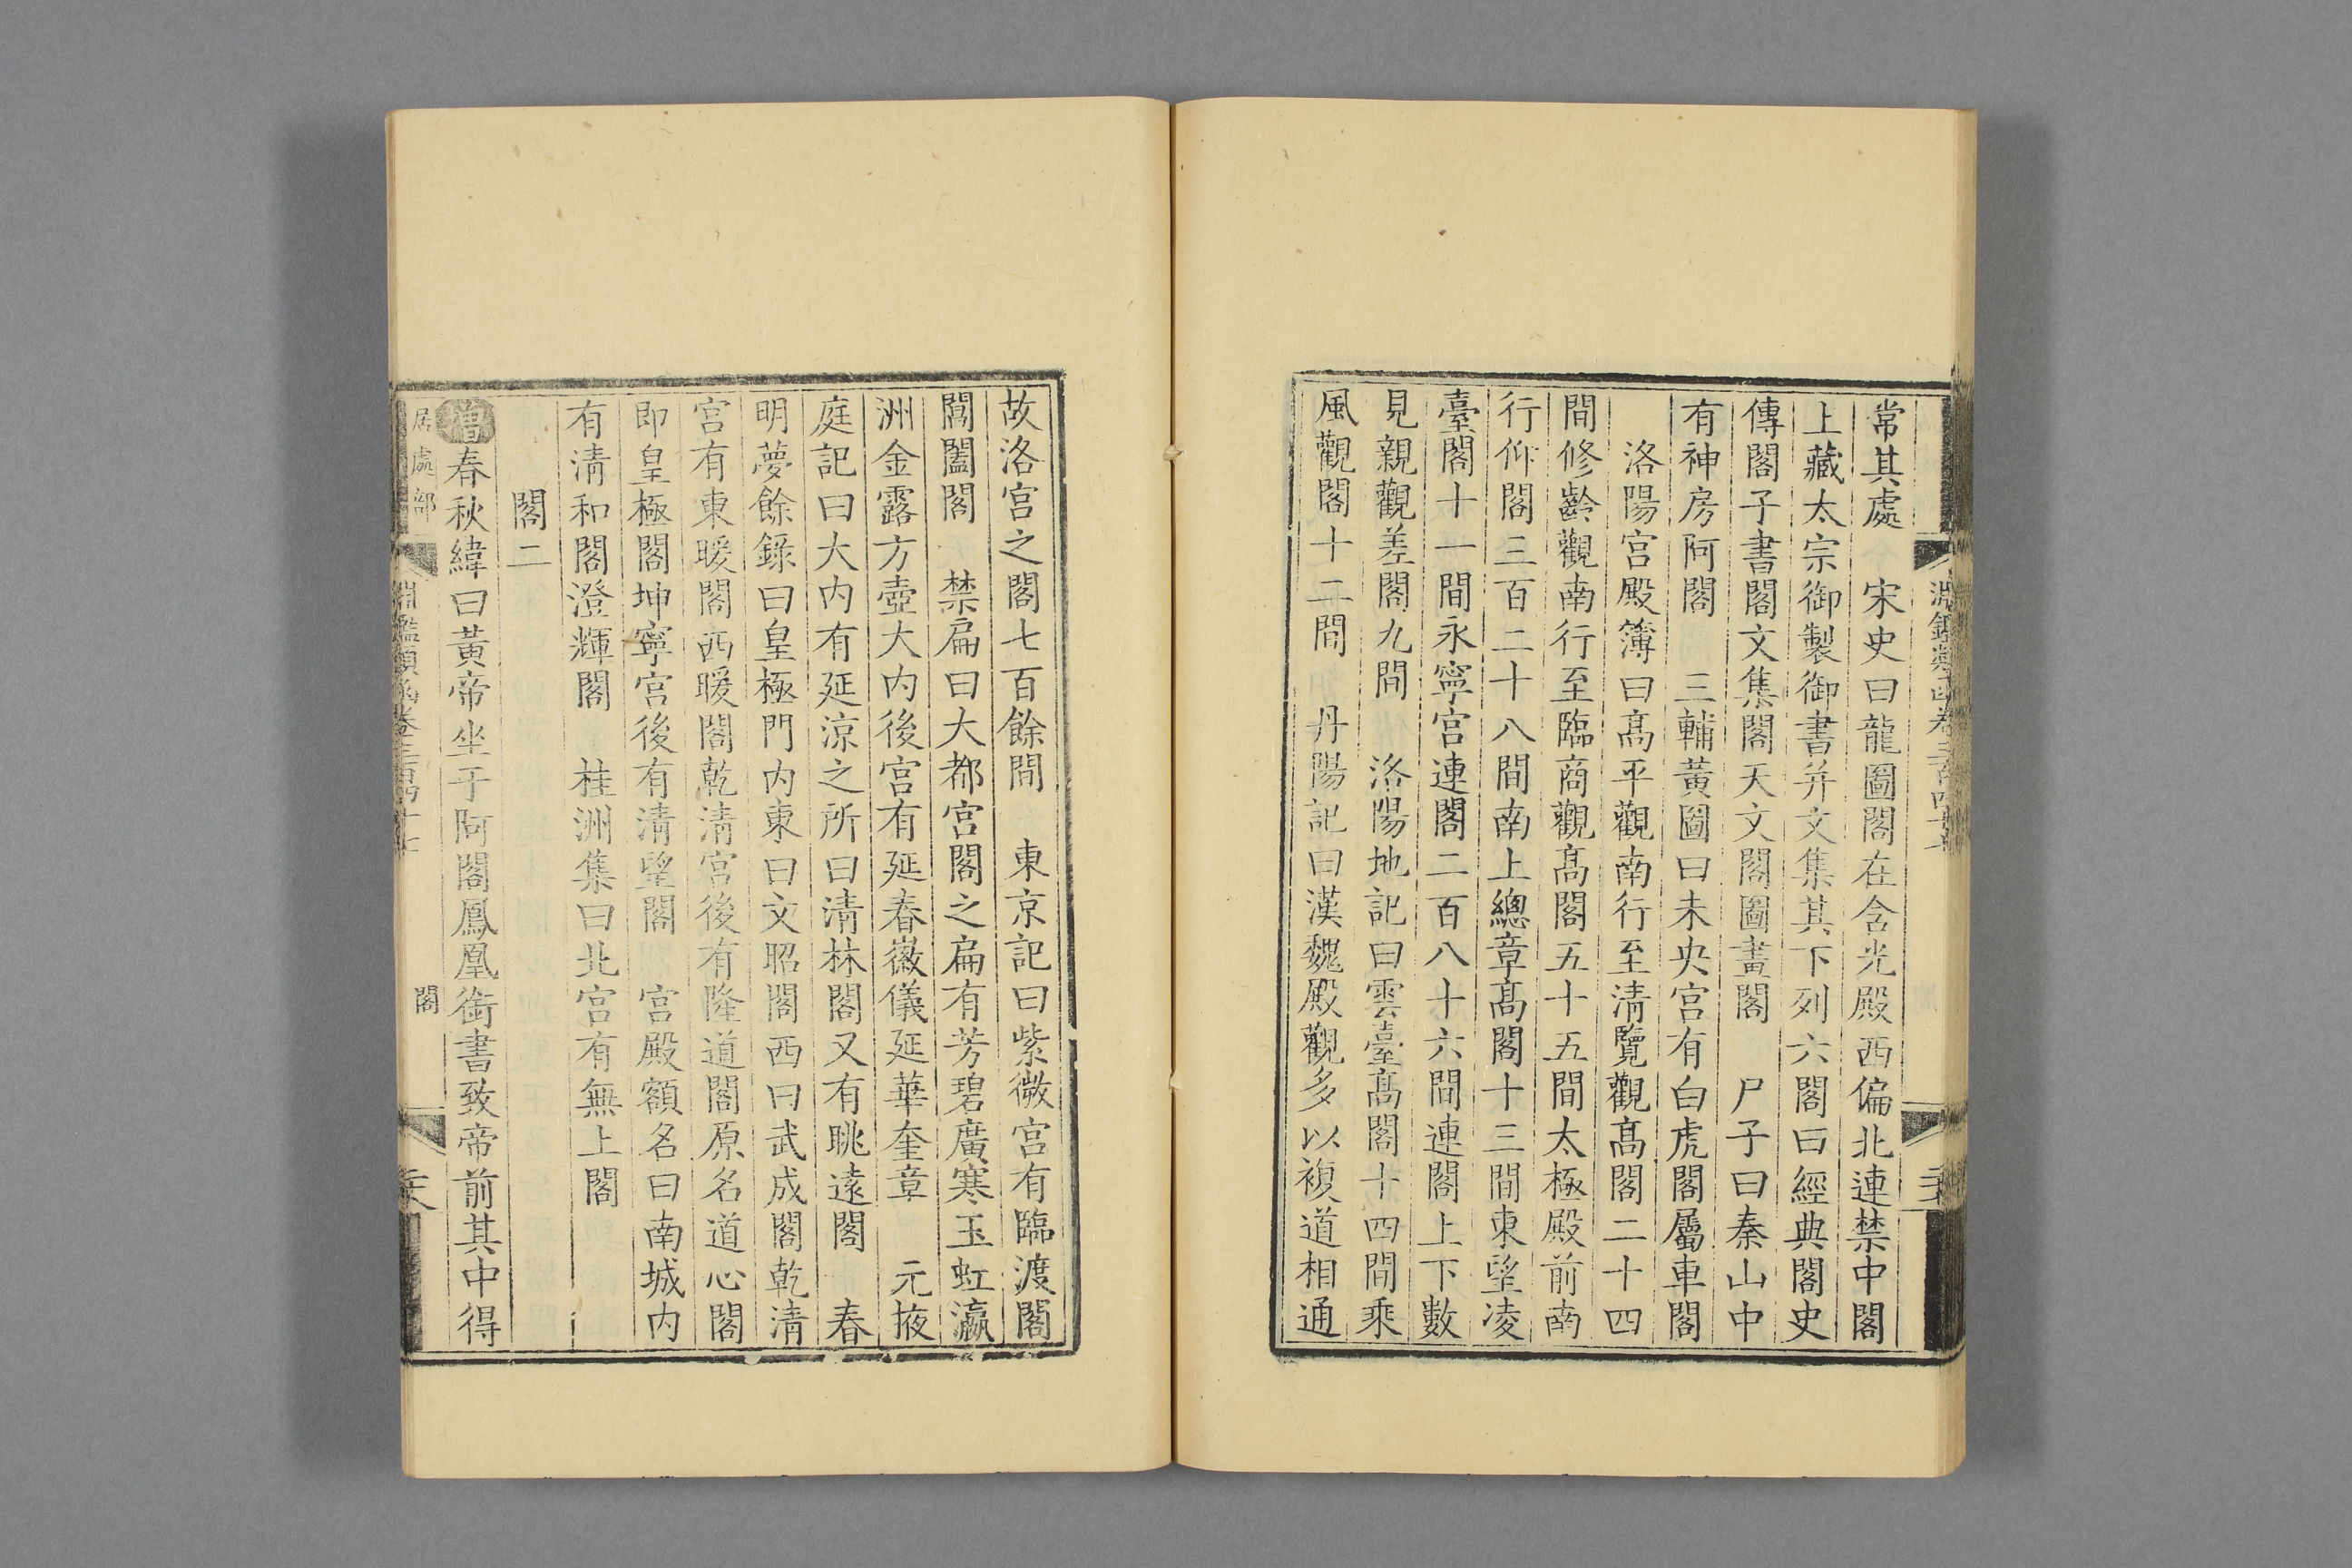 常其處 宋史曰龍圖閣在含光殿西偏北連禁中閣
上藏太宗御製御書并文集其下列六閣曰經典閣史
傳閣子書閣文集閣天文閣圖畫閣 尸子曰秦山中
有神房阿閣 三輔黃圖曰未央宮有白虎閣屬車閣
洛陽宮殿簿曰髙平觀南行至清覽觀髙閣二十四
間修齡觀南行至臨商觀髙閣五十五間太極殿前南
行仰閣三百二十八間南上總章髙閣十三間東望凌
臺閣十一間永寧宮連閣二百八十六間連閣上下數
見親觀差閣九間 洛陽地記曰雲臺髙閣十四間乘
風觀閣十二間 丹陽記曰漢魏殿觀多以複道相通
故洛宮之閣七百餘間 東京記曰紫微宮有臨渡閣
閶闔閣 禁扁曰大都宮閣之扁有芳碧廣寒玉虹瀛
洲金露方壺大内後宮有延春徽儀延華奎章 元掖
庭記曰大内有延涼之所曰清林閣又有眺遠閣 春
明夢餘錄曰皇極門内東曰文昭閣西曰武成閣乾清
宮有東暖閣西暖閣乾清宮後有隆道閣原名道心閣
即皇極閣坤寧宮後有清望閣 宮殿額名曰南城内
有清和閣澄輝閣 桂洲集曰北宮有無上閣
閣二
增春秋緯曰黃帝坐于阿閣鳳凰銜書致帝前其中得
居處部 淵鑑類函卷三百四十七 閣 二十八